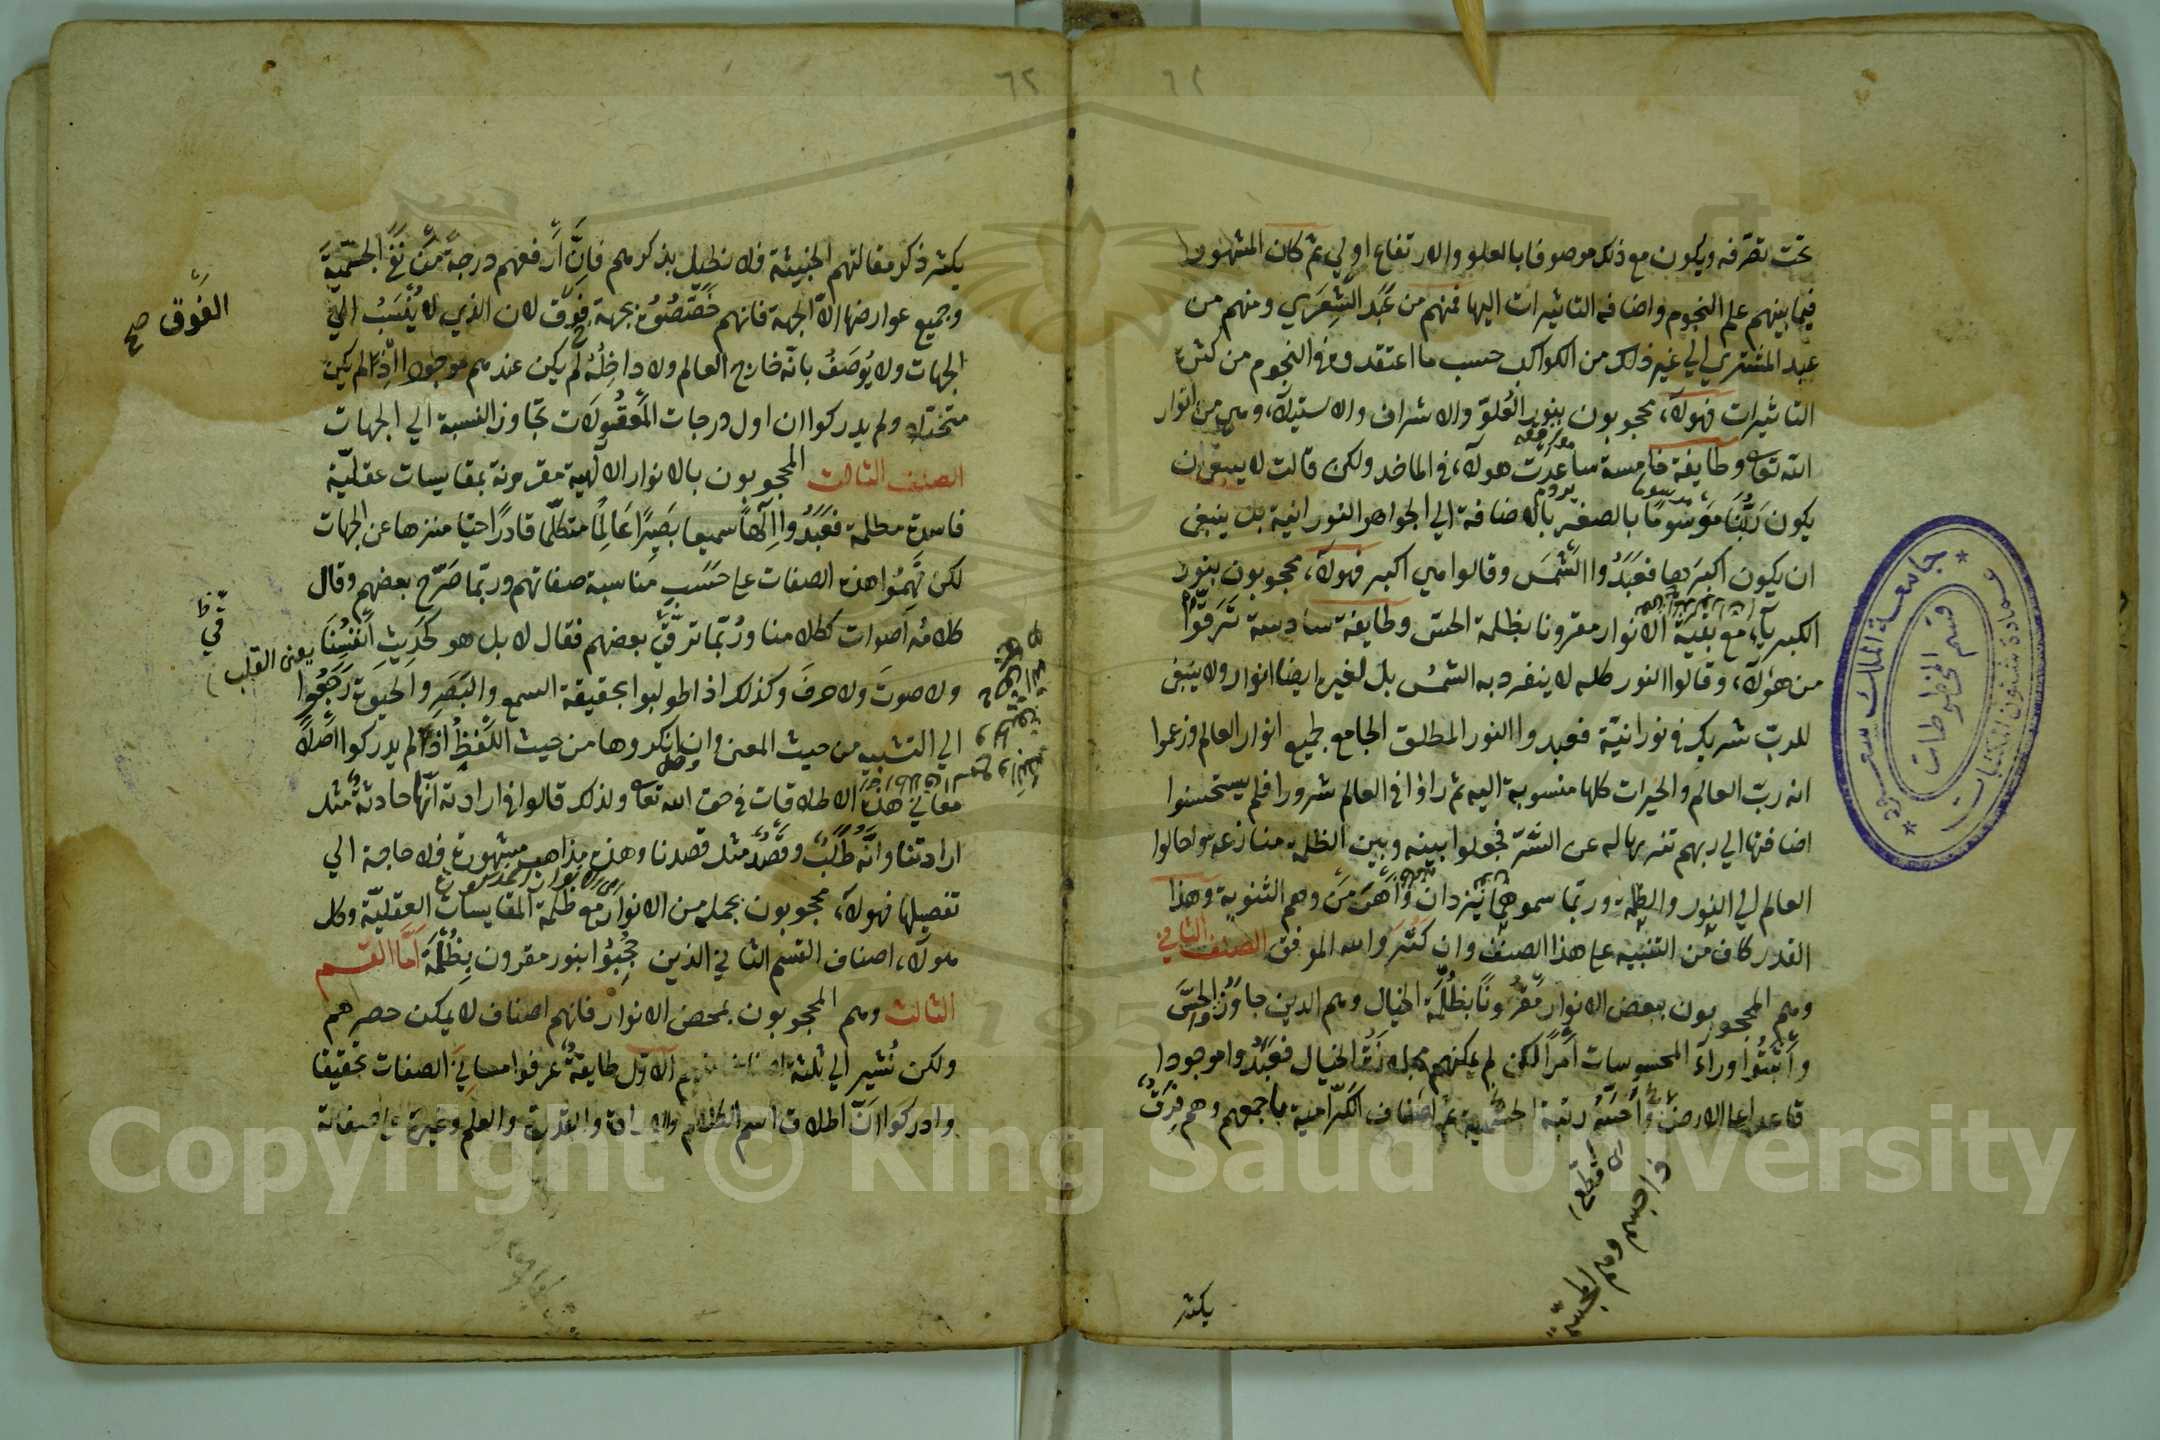 ٦٢
تحت تصرفه ويكون مع ذلك موصوفا بالعلو والارتفاع اولي ثم كان المشهور
فيما بينهم علم النجوم واضافة التاثيرات اليها فمنهم من عبد الشعري ومنهم من
عبد المشتري الي غير ذلك من الكواكب حسب ما اعتقدوه في النجوم من كثرة
التاثيرات فهولآء محجوبون بنور العلو والاشراق والاستيلآء وهي من انوار
الله تعا وطايفة خامسة ساعدت هولآء في الماخذ ولكن قالت لا ينبغي ان
يكون ربنا موسوما بالصغر بالاضافة الي الجواهر النورانية بل ينبغي
ان يكون اكبرها فعبدوا الشمس وقالوا هي اكبر فهولآء محجوبون بنور
الكبريآء مع بقية الانوار مقرونا بظلمة الحس وطايفة سادسة ترقوا
من هؤلآء وقالوا النور كله لا ينفرد به الشمس بل لغيره ايضا انوار ولا ينبغي
للرب شريك في نورانيته فعبدوا النور المطلق الجامع لجميع انوار العالم وزعموا
انه رب العالم والخيرات كلها منسوبة اليه ثم راؤا في العالم شرورا فلم يستحسنوا
اضافتها الي ربهم تنزيها له عن الشر فجعلوا بينه وبين الظلمة منازعة واحالوا
العالم الي النور والظلمة وربما سموهما يزدان واهرمن وهم الثنوية وهذا
القدر كاف من التنبيه علي هذا الصنف وان كثروا والله الموفق الصنف الثاني
وهم المحجوبون ببعض الانوار مقرونا بظلمة الخيال وهم الذين جاوزوا الحس
واثبتوا ورآء المحسوسات امرا لكن لم يمكنهم مجاوزة الخيال فعبدوا موجودا
قاعدا علي العرش واخسهم رتبة المجسمة ثم اصناف الكرامية باجمعهم وهم فرق
يكثر
جامعة الملك سعود
عمادة شئون المكتبات
قسم المخطوطات
٦٢
يكثر ذكر مقالتهم الخبيثة فلا نطيل بذكرهم فان ارفعهم درجة من نفي الجسمية
وجميع عوارضها الا الجهة فانهم خصصوه بجهة فوق لان الذي لا ينسب الي
الجهات ولا يوصف بانه خارج العالم ولا داخله لم يكن عندهم موجودا اذ لم يكن
متخيلا ولم يدركوا ان اول درجات المعقولات تجاوز النسبة الي الجهات
الصنف الثالث المحجوبون بالانوار الالهية مقرونة بمقايسات عقلية
فاسدة مظلمة فعبدوا الها سميعا بصيرا عالما متكلما قادرا حيا منزها عن الجهات
لكن فهموا هذه الصفات علي حسب مناسبة صفاتهم وربما صرح بعضهم وقال
كلامه اصوات ككلامنا وربما ترقي بعضهم فقال لا بل هو كحديث انفسنا
ولا صوت ولا حرف وكذلك اذا طولبوا بحقيقة السمع والبصر والحيوة رجعوا
الي التشبيه من حيث المعني وان انكروها من حيث اللفظ اذ لم يدركوا اصلا
معاني هذه الاطلاقات في حق الله تعا ولذلك قالوا في ارادته انها حادثة مثل
ارادتنا وانه طلب وقصد مثل قصدنا وهذه مذاهب مشهورة فلا حاجة الي
تفصيلها فهولآء محجوبون بجملة من الانوار مع ظلمة المقايسات العقلية وكل
هولآء اصناف القسم الثاني الذين حجبوا بنور مقرون بظلمة اما القسم
الثالث وهم المحجوبون بمحض الانوار فانهم اصناف لا يمكن حصرهم
ولكن نشير الي ثلثة اصناف منهم الاول طايفة عرفوا معاني الصفات تحقيقا
وادركوا ان اطلاق اسم الكلام والارادة والقدرة والعلم وغيرها علي صفاته
الفوق صح
يعني القلب
Copyright © King Saud University
1957